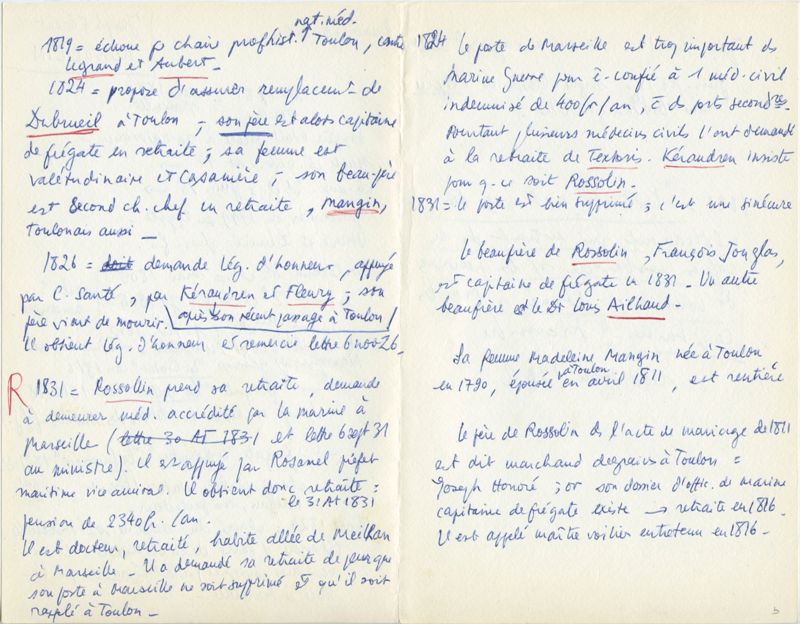 nat. méd.
1819 = échoue pr chaire prof hist. ↑ Toulon, contre
Legrand et Aubert _
1824 = propose d'assurer remplacement de
Dubrueil à Toulon ; son père est alors capitaine
de frégate en retraite ; sa femme est
valétudinaire et casanière ; son beau-père
est second ch. chef en retraite, Mangin,
toulonais aussi _
1826 = doit demande Lég. d'honneur, appuyé
par C. Santé, par Kérandren et Fleury ; son
père vient de mourir. après son récent passage à Toulon /
Il obtient Lég. d'honneur et remercie lettre 6 nov 26_
R 1831 = Rossollin prend sa retraite, demande
à demeurer méd. accrédité par la marine à
Marseille (lettre 30 AT 1831 et lettre 6 sept 31
au ministre). Il est appuyé par Rosamel préfet
maritime vice amiral. Il obtient donc retraite :
le 31 AT 1831
pension de 2340 fr. /an.
Il est docteur, retraité, habite allée de Meilhan
à Marseille _ Il a demandé sa retraite de peur que
son poste à Marseille ne soit supprimé et qu'il soit
rapplé à Toulon _
1824 Le poste de Marseille est trop important ds
Marine Guerre pour ê confié à 1 méd. civil
indemnisé de 400 fr/an, c̄ ds ports secondres.
Pourtant plusieurs médecins civils l'ont demandé
à la retraite de Textoris. Kérandren insiste
pour q. ce soit Rossolin _
1831 = le poste est bien supprimé ; c'est une sinécure
Le beaufrère de Rossolin, François Jouglas,
est capitaine de frégate en 1831 _ Un autre
beaufrère est le Dr Louis Ailhaud _
Sa femme Madeleine, Mangin née à Toulon
en 1790, épousée à Toulon en avril 1811, est rentière
Le père de Rossolin ds l'acte de mariage de 1811
est dit marchand de grains à Toulon =
Joseph Honoré ; or son dossier d'offic. de marine
capitaine de frégate existe → retraite en 1816 _
Il est appelé maître voilier entretenu en 1816 _